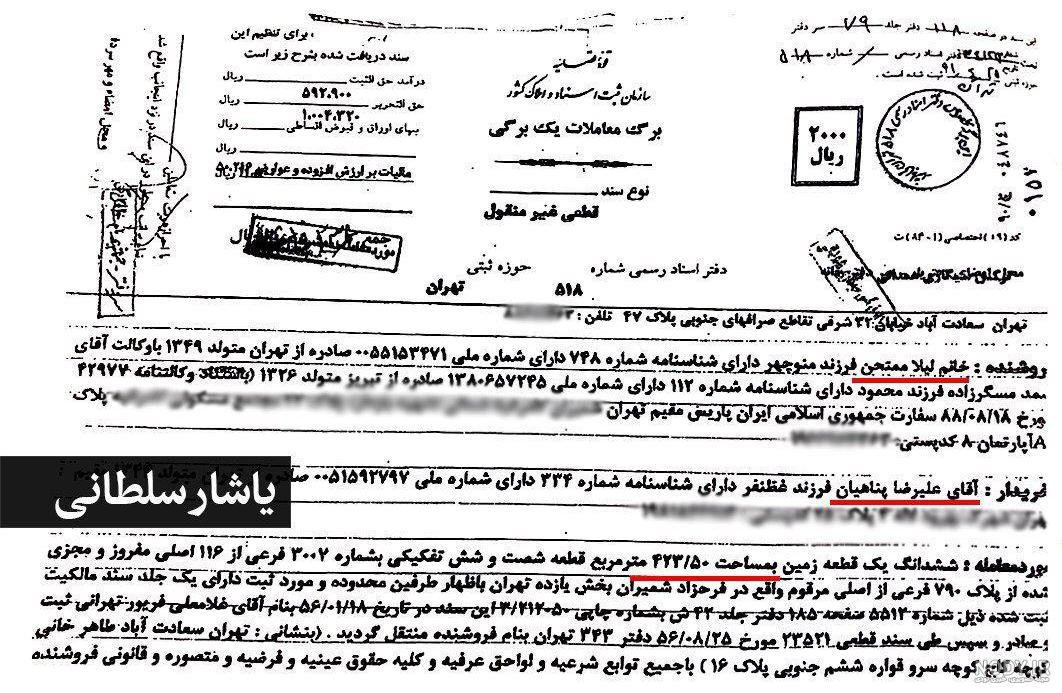 این سند در صفحه ۱۱۸ دفتر جلد ۷۹ سر دفتر
دفتر اسناد رسمی شماره ۵۱۸
ثبت شده است.
تهران
۲۰۰۰
ریال
۱۶۸۷۴۰
۸۵۱۰
کد (۱۹) اختصاصی (۸۴۰۱) ت
قوه قضائیه
سازمان ثبت اسناد و املاک کشور
برگ معاملات یک برگی
نوع سند
قطعی غیر منقول
دفتر اسناد رسمی شماره
حوزه ثبتی
۵۱۸
تهران
برای تنظیم این
سند دریافت شده بشرح زیر است
درآمد حق الثبت ریال
۵۹۲،۹۰۰
حق التحریر ریال
۱،۰۰۴،۳۲۰
بهای اوراق و فیوض اقساطی ریال
ریال
مالیات بر ارزش افزوده و عوارض
تهران سعادت آباد خیابان ۳۱ شرقی تقاطع صرافهای جنوبی پلاک ۴۷ تلفن:
روشنده : خانم لیلا ممتحن فرزند منوچهر دارای شناسنامه شماره ۷۴۸ دارای شماره ملی ۰۰۵۵۱۵۳۴۷۱ صادره از تهران متولد ۱۳۴۹ باوکالت آقای
مسگرزاده فرزند محمود دارای شناسنامه شماره ۱۱۲ دارای شماره ملی ۱۳۸۰۶۵۷۲۴۵ صادره از تبریز متولد ۱۳۲۶ (باستناد وکالتنامه ۴۲۹۷۴
مورخ ۸۸/۰۸/۱۸ سفارت جمهوری اسلامی ایران پاریس مقیم تهران پلاک
۸ آپارتمان ۸ کدپستی:
خریدار : آقای علیرضا پناهیان فرزند غظنفر دارای شناسنامه شماره ۳۳۴ دارای شماره ملی ۰۰۵۱۵۹۲۷۹۷ تهران متولد مقیم
یاشار سلطانی
موردمعامله : ششدانگ یک قطعه زمین بمساحت ۴۲۳/۵۰ مترمربع قطعه شصت و شش تفکیکی بشماره ۳۰۰۲ فرعی از ۱۱۶ اصلی مفروز و مجزی
شده از پلاک ۷۹۰ فرعی از اصلی مرقوم واقع در فرحزاد شمیران بخش یازده تهران باظهار طرفین محدوده و مورد ثبت دارای یک جلد سند مالکیت
ثبت شده ذیل شماره ۵۵۱۳ صفحه ۱۸۵ دفتر جلد ۴۲ ش بشماره چاپی ۳/۲۱۲۰۵۰ این سند در تاریخ ۵۶/۰۱/۱۸ بنام آقای غلامعلی فریور تهرانی ثبت
و صادر و سپس طی سند قطعی ۲۳۵۲۱ مورخ ۵۶/۰۸/۲۵ دفتر ۳۴۳ تهران بنام فروشنده منتقل گردید . (بنشانی : تهران سعادت آباد طاهر خانی
کوچه کاج کوچه سرو قواره ششم جنوبی پلاک ۱۶ ) باجمیع توابع شرعیه و لواحق عرفیه و کلیه حقوق عینیه و فرضیه و متصوره و قانونی فروشنده